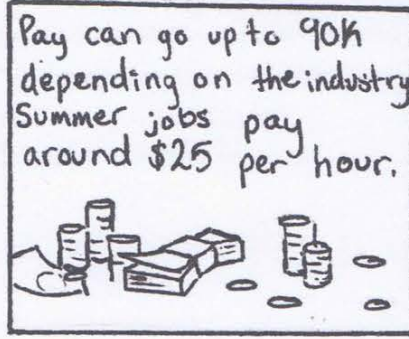 Pay can go up to 90K
depending on the industry
Summer jobs pay
around $25 per hour.